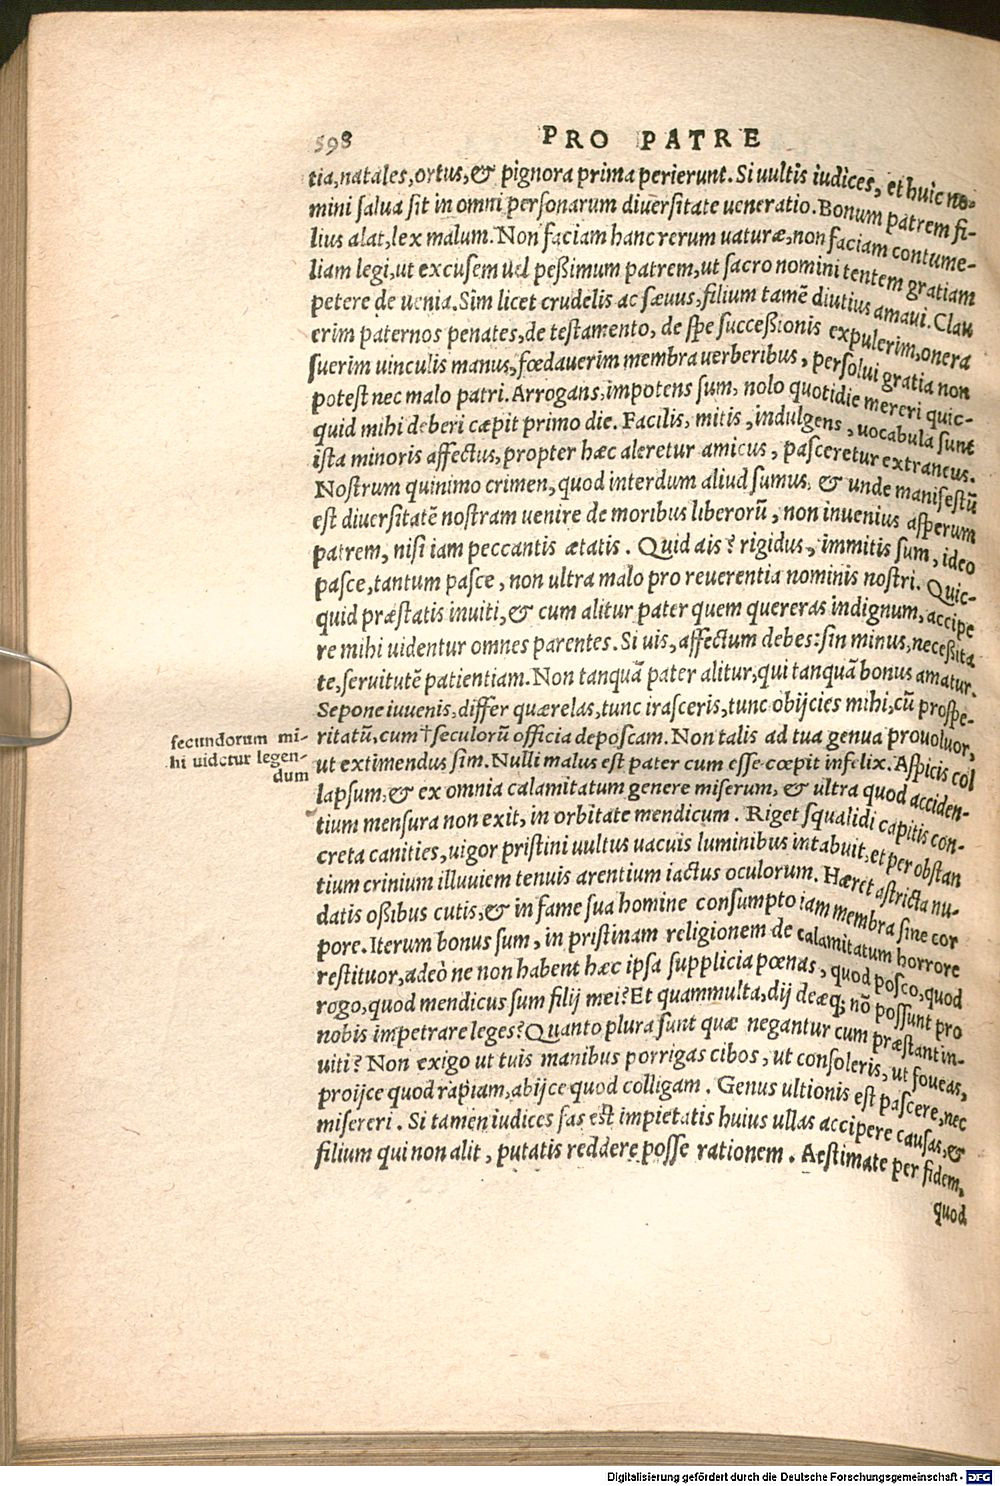 598 PRO PATRE
tia, natales, ortus, & pignora prima perierunt. Si uultis iudices, et huic no-
mini salua sit in omni personarum diuersitate ueneratio. Bonum patrem fi-
lius alat, lex malum. Non faciam hanc rerum uaturæ, non faciam contume-
liam legi, ut excusem uel peßimum patrem, ut sacro nomini tentem gratiam
petere de uenia. Sim licet crudelis ac sæuus, filium tamē diutius amaui. Clau
erim paternos penates, de testamento, de spe succeßionis expulerim, onera
suerim uinculis manus, fœdauerim membra uerberibus, persolui gratia non
potest nec malo patri. Arrogans, impotens sum, nolo quotidie mereri quic-
quid mihi deberi cæpit primo die. Facilis, mitis, indulgens, uocabula sunt
ista minoris affectus, propter hæc aleretur amicus, pasceretur extraneus.
Nostrum quinimo crimen, quod interdum aliud sumus, & unde manifestū
est diuersitatē nostram uenire de moribus liberorū, non inuenius asperum
patrem, nisi iam peccantis ætatis. Quid ais? rigidus, immitis sum, ideo
pasce, tantum pasce, non ultra malo pro reuerentia nominis nostri. Quic-
quid præstatis inuiti, & cum alitur pater quem quereras indignum, accipe
re mihi uidentur omnes parentes. Si uis, affectum debes: sin minus, neceßita
te, seruitutē patientiam. Non tanquā pater alitur, qui tanquā bonus amatur.
Sepone iuuenis, differ quærelas, tunc irasceris, tunc obijcies mihi, cū prospe-
ritatū, cum † seculorū officia deposcam. Non talis ad tua genua prouoluor,
ut extimendus sim. Nulli malus est pater cum esse cœpit infelix. Aspicis col
lapsum, & ex omnia calamitatum genere miserum, & ultra quod acciden-
tium mensura non exit, in orbitate mendicum. Riget squalidi capitis con-
creta canities, uigor pristini uultus uacuis luminibus intabuit, et per obstan
tium crinium illuuiem tenuis arentium iactus oculorum. Hæret astricta nu-
datis oßibus cutis, & in fame sua homine consumpto iam membra sine cor
pore. Iterum bonus sum, in pristinam religionem de calamitatum horrore
restituor, adeò ne non habent hæc ipsa supplicia pœnas, quod posco, quod
rogo, quod mendicus sum filij mei? Et quammulta, dij deæq; nō possunt pro
nobis impetrare leges? Quanto plura sunt quæ negantur cum præstant in-
uiti? Non exigo ut tuis manibus porrigas cibos, ut consoleris, ut foueas,
proijce quod rapiam, abijce quod colligam. Genus ultionis est pascere, nec
misereri. Si tamen iudices fas est impietatis huius ullas accipere causas, &
filium qui non alit, putatis reddere posse rationem. Aestimate per fidem,
quod
fecundorum mi-
hi uidetur legen-
dum
Digitalisierung gefördert durch die Deutsche Forschungsgemeinschaft - DFG